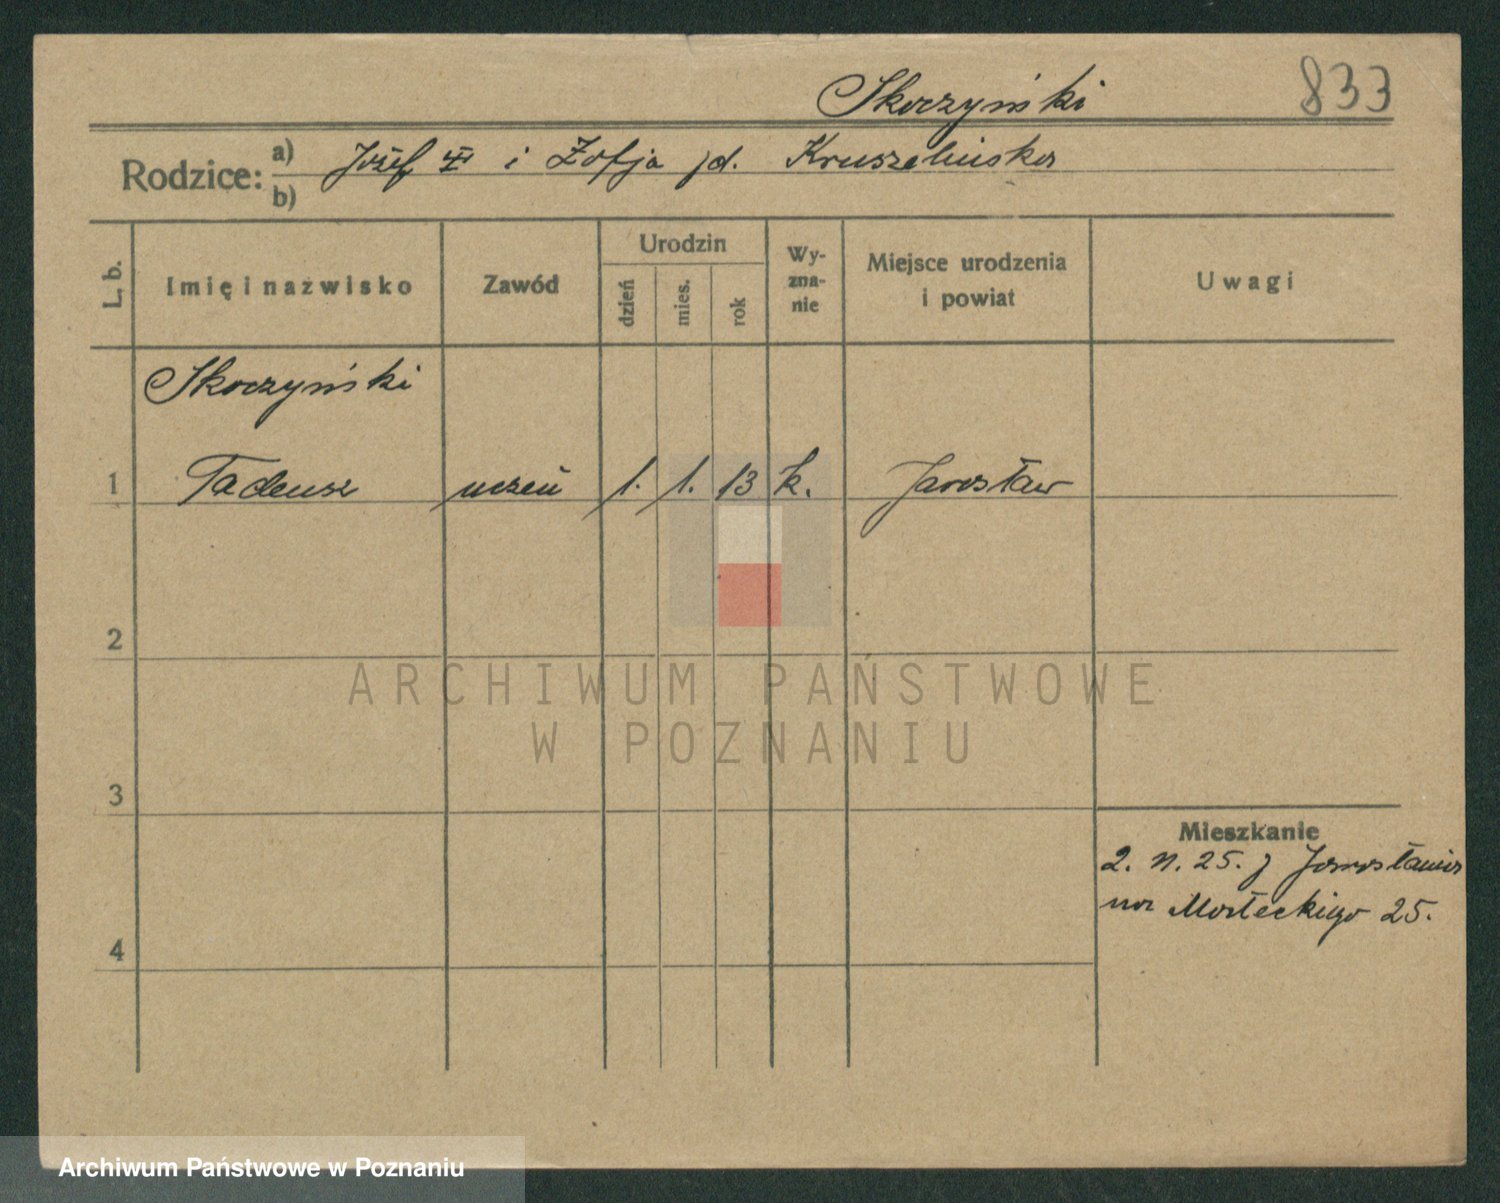 Skoczyński 833
Rodzice: a) Józef i Zofja
b)
L. b.
Imię i nazwisko
Zawód
Urodzin
dzień
mies.
rok
Wy-
zna-
nie
Miejsce urodzenia
i powiat
Uwagi
Skoczyński
1 Tadeusz uczeń 1. 1. 13 k. Jarosław
2
ARCHIWUM PAŃSTWOWE
W POZNANIU
3
Mieszkanie
2. 11. 25. z Jarosławia
na 25.
4
Archiwum Państwowe w Poznaniu